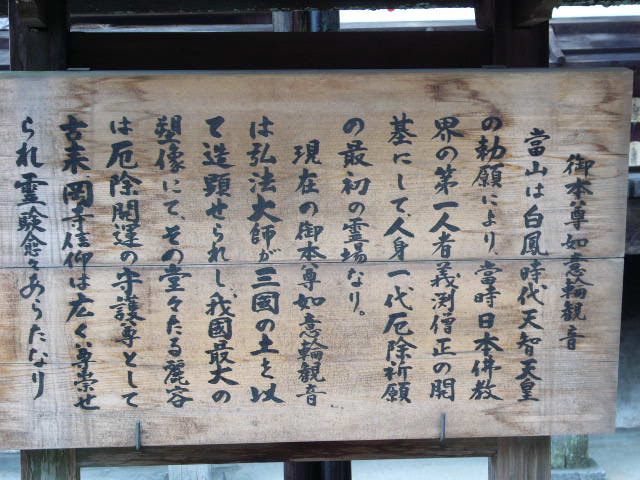 御本尊如意輪觀音
當山は白鳳時代天智天皇
の勅願により、當時日本佛教
界の第一人者義渕僧正の開
基にして、人身一代厄除祈願
の最初の霊場なり。
現在の御本尊如意輪観音
は弘法大師が三国の土を以
て造顕せられし、我國最大の
塑像にて、その堂々たる麗容
は厄除開運の守護尊として
古来岡寺信仰は広く尊崇せ
られ霊験愈々あらたなり